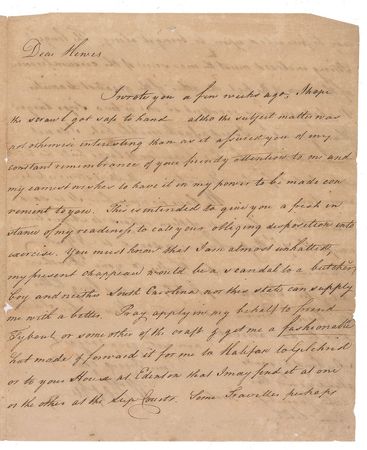 Dear Hewes
I wrote you a few weeks ago; I hope
the scrawl got safe to hand altho the subject matter was
not otherwise interesting than as it assured you of my
constant remembrance of your friendly attention to me and
my earnest wishes to have it in my power to be made con
venient to you. This is intended to give you a fresh in
stance of my readiness to call your obliging disposition into
exercise. You must know that I am almost unhatted,
my present chappeau would be a scandal to a butcher's
boy and neither South Carolina nor this state can supply
me with a better. Pray apply in my behalf to friend
Tybout or some other of the craft & get me a fashionable
hat made & forward it for me to Halifax to Gilchrist
or to your House at Edenton that I may find it at one
or the other at the Sup Courts. Some Traveller perhaps